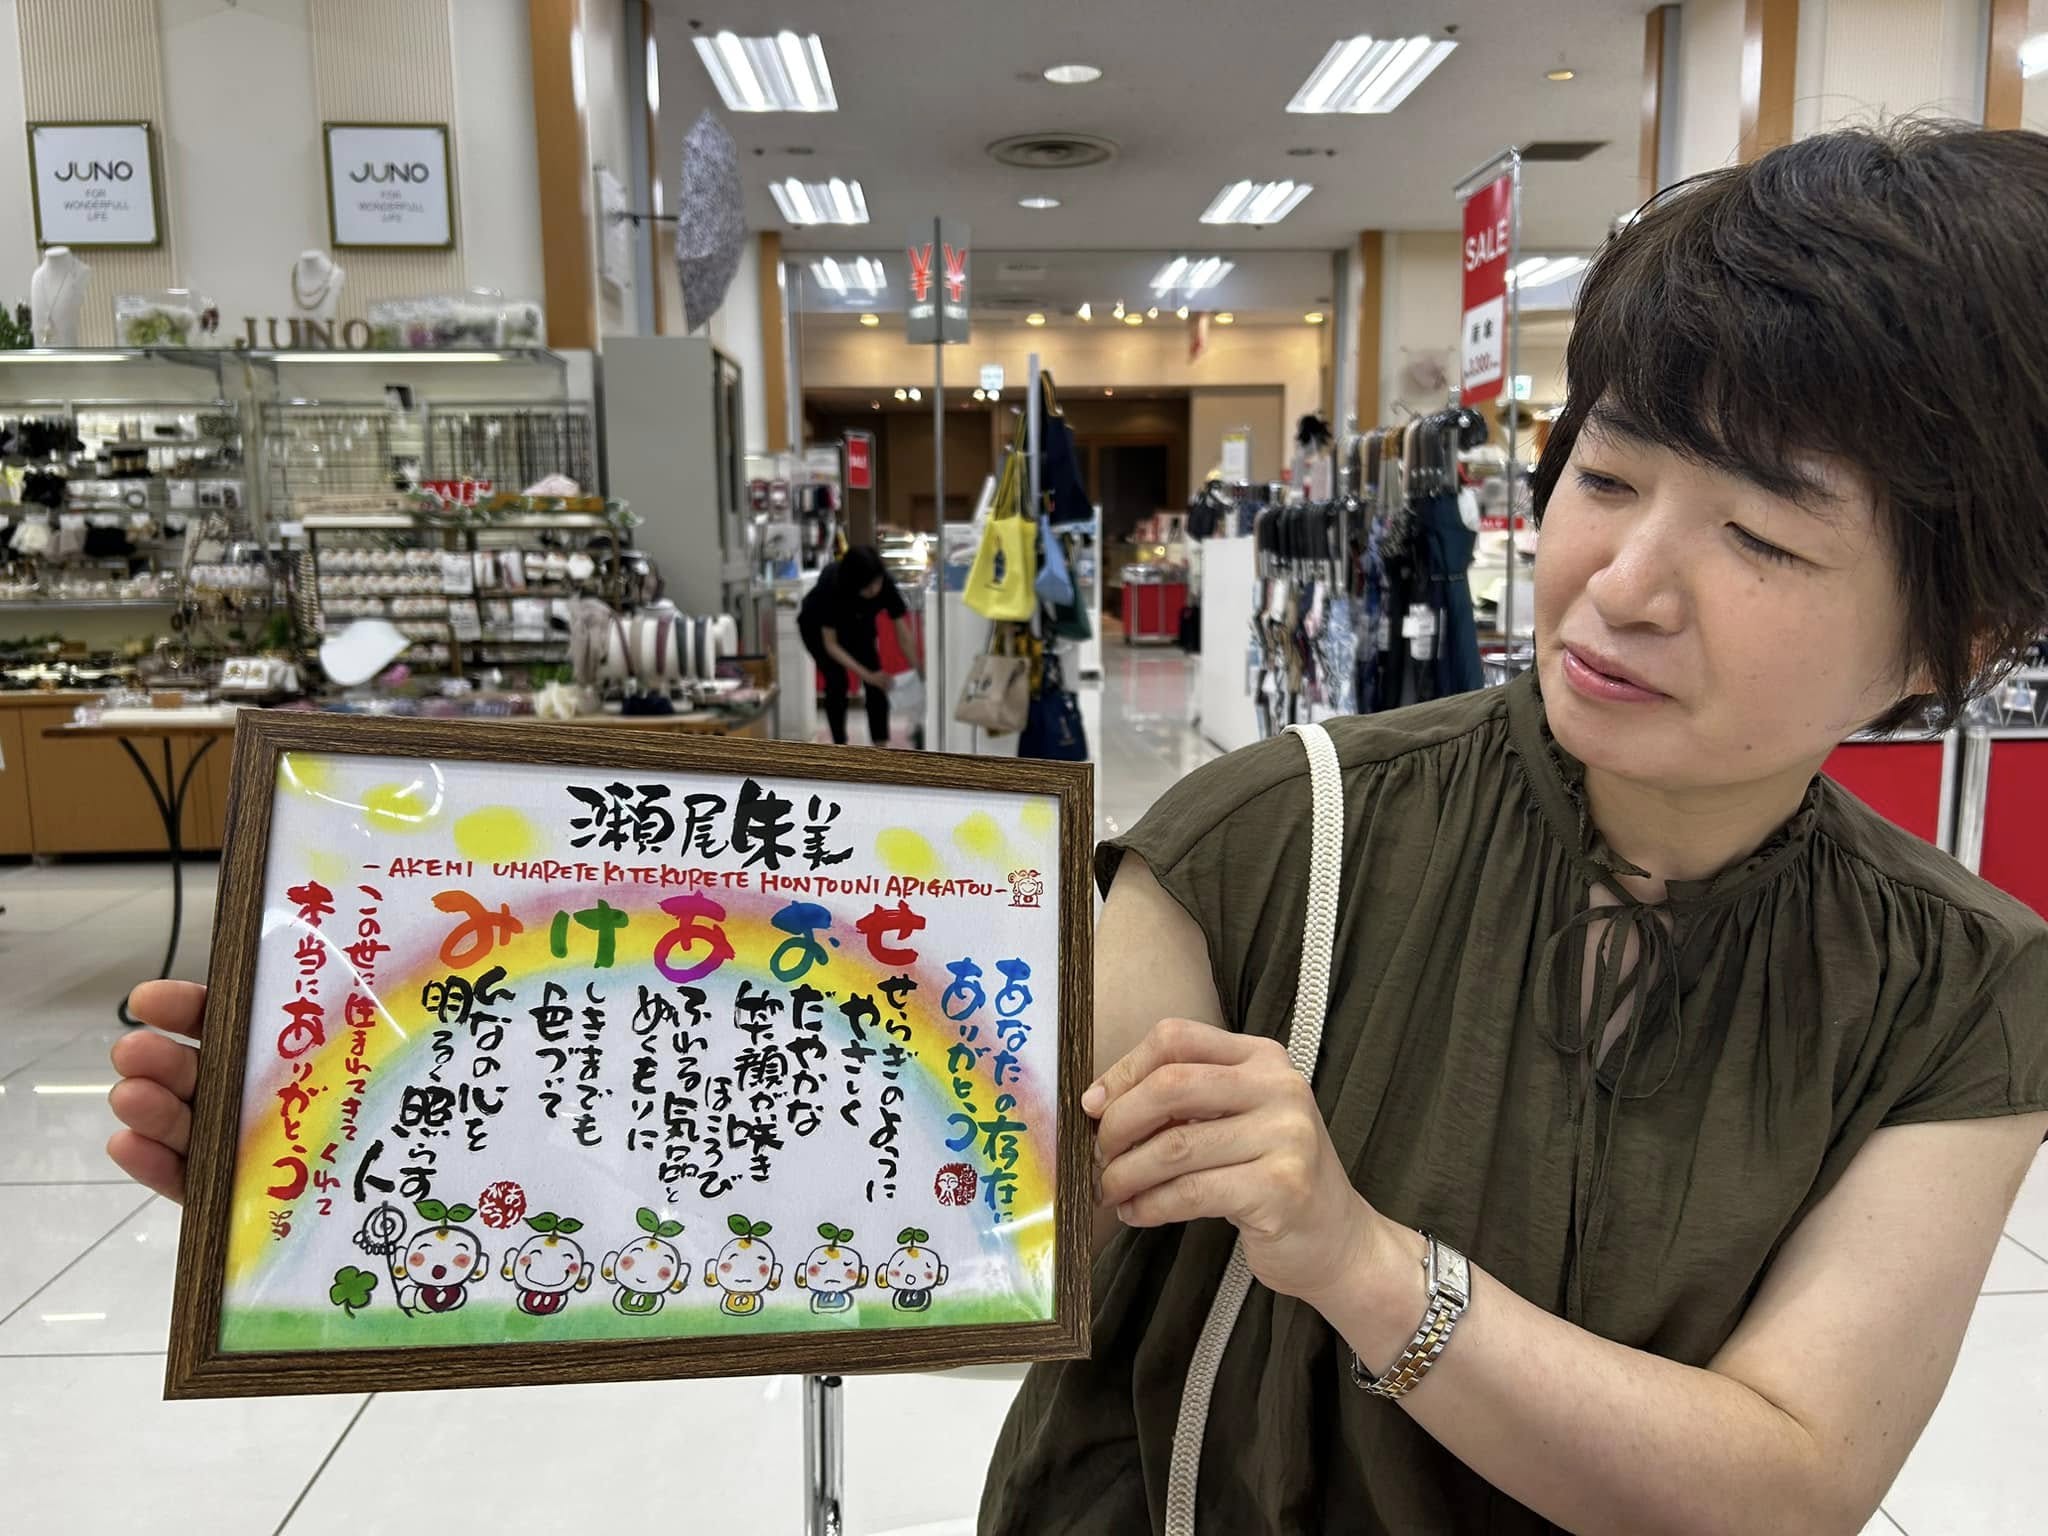 JUNO
FOR
WONDERFULL
LIFE
JUNO
FOR
WONDERFULL
LIFE
JUNO
SALE
¥
¥
SALE
SALE
瀬尾朱美
-AKEMI UMARETEKITEKURETE HONTOUNI ARIGATOU-
せおあけみ
あなたの存在に
ありがとう
せせらぎのように
やさしく
おだやかな
笑た顔が咲き
ほころび
あふれる気品と
ぬくもりに
けしきまでも
色づいて
みんなの心を
明るく照らす
人
この世に生まれてきてくれて
本当にありがとう
ありがとう